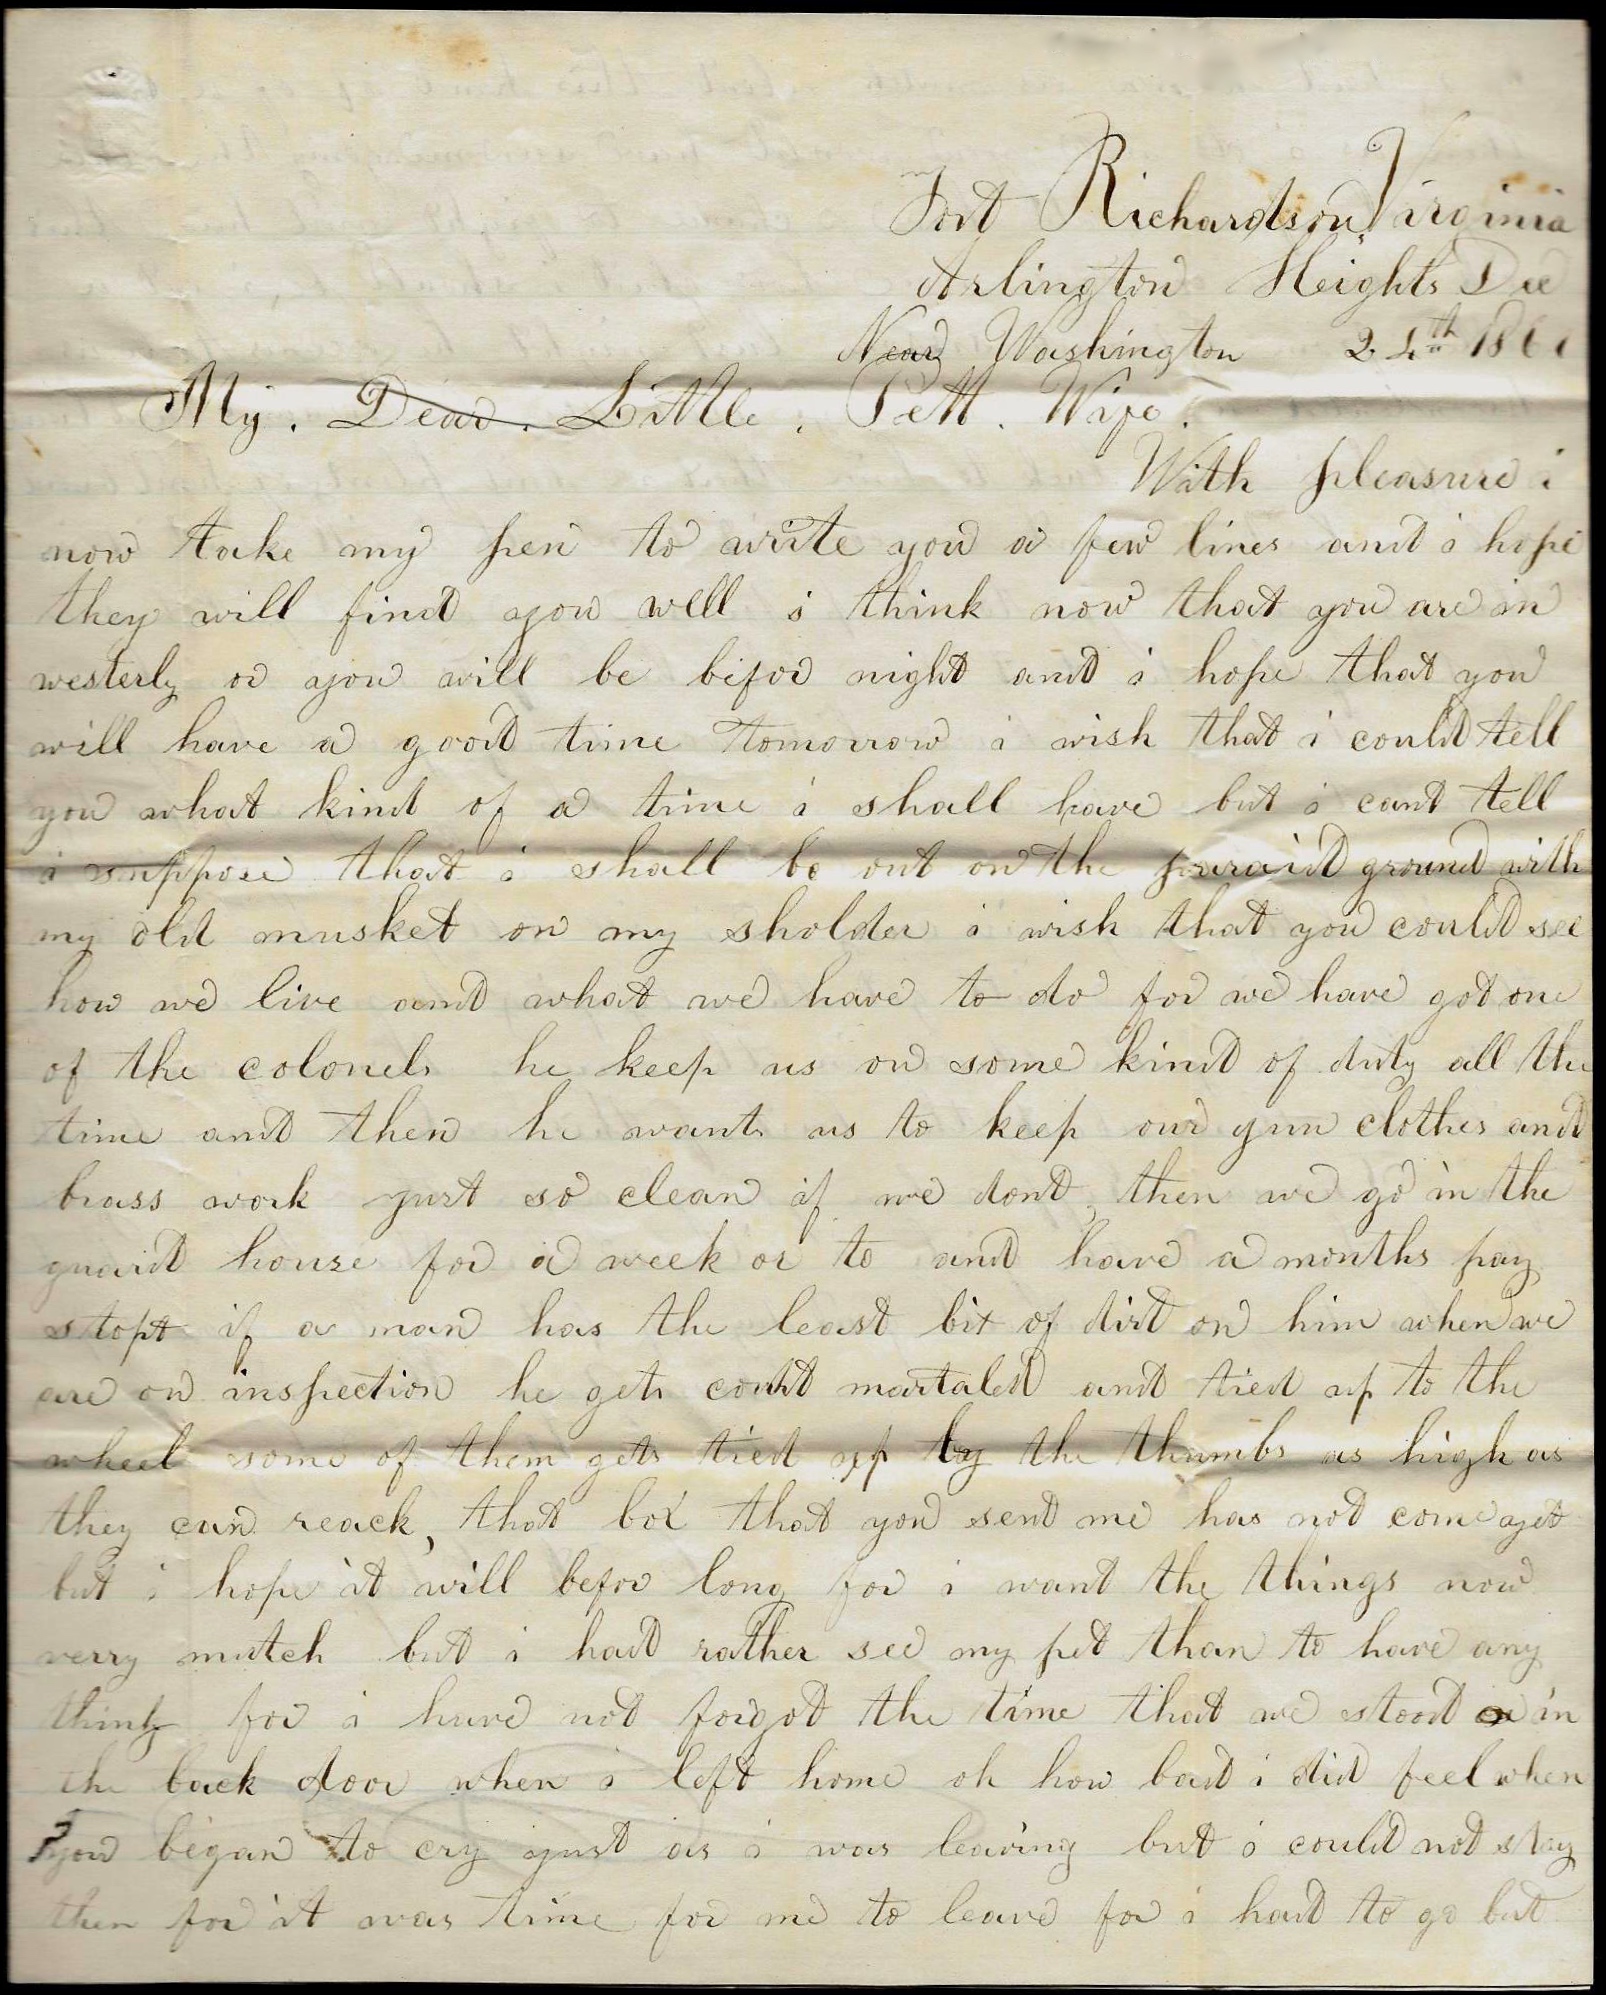 Fort Richardson, Virginia
Arlington Heights Dec
Near Washington 24th 186
My. Dear. Little. Pett. Wife.
With pleasure i
now take my pen to write you a few lines and i hope
they will find you well i think now that you are in
westerly or you will be bifor night and i hope that you
will have a good time tomorrow i wish that i could tell
you what kind of a time i shall have but i cant tell
i suppose that i shall be out on the paraid ground with
my old musket on my sholder i wish that you could see
how we live and what we have to do for we have got one
of the colonels he keep us on some kind of duty all the
time and then he wants us to keep our gun clothes and
brass work just so clean if we dont, then we go in the
guard house for a week or to and have a months pay
stopt if a man has the least bit of dirt on him when we
are on inspection he gets court martaled and tied up to the
wheel some of them gets tied up by the thumbs as high as
they can reack, that box that you sent me has not come yet
but i hope it will befor long for i want the things now
verry mutch but i had rather see my pet than to have any
thing for i have not forgot the time that we stood in
the back door when i left home oh how bad i did feel when
you began to cry just as i was leaving but i could not stay
then for it was time for me to leave for i had to go but